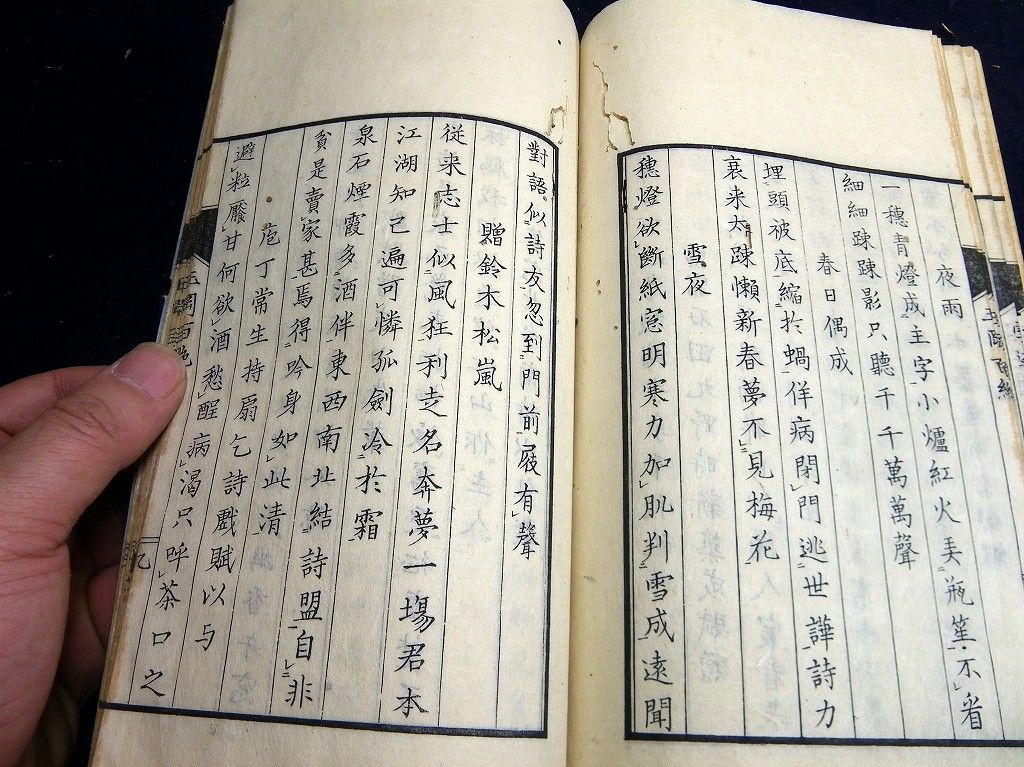 夜雨
一穗青燈成主字小爐紅火美瓶笙不看
細細踈踈影只聽千千萬萬聲
春日偶成
埋頭被底縮於蝸佯病閉門逃世譁詩力
衰来太踈懶新春夢不見梅花
雪夜
穗燈欲斷紙窓明寒力加肌判雪成遠聞
對語似詩友忽到門前屐有聲
贈鈴木松嵐
従来志士似風狂利走名奔夢一場君本
江湖知己遍可憐孤劍冷於霜
泉石煙霞多酒伴東西南北結詩盟自非
貧是賣家甚焉得吟身如此清
庖丁常生持扇乞詩戲賦以与
避粒厭甘何欲酒愁醒病渴只呼茶口之